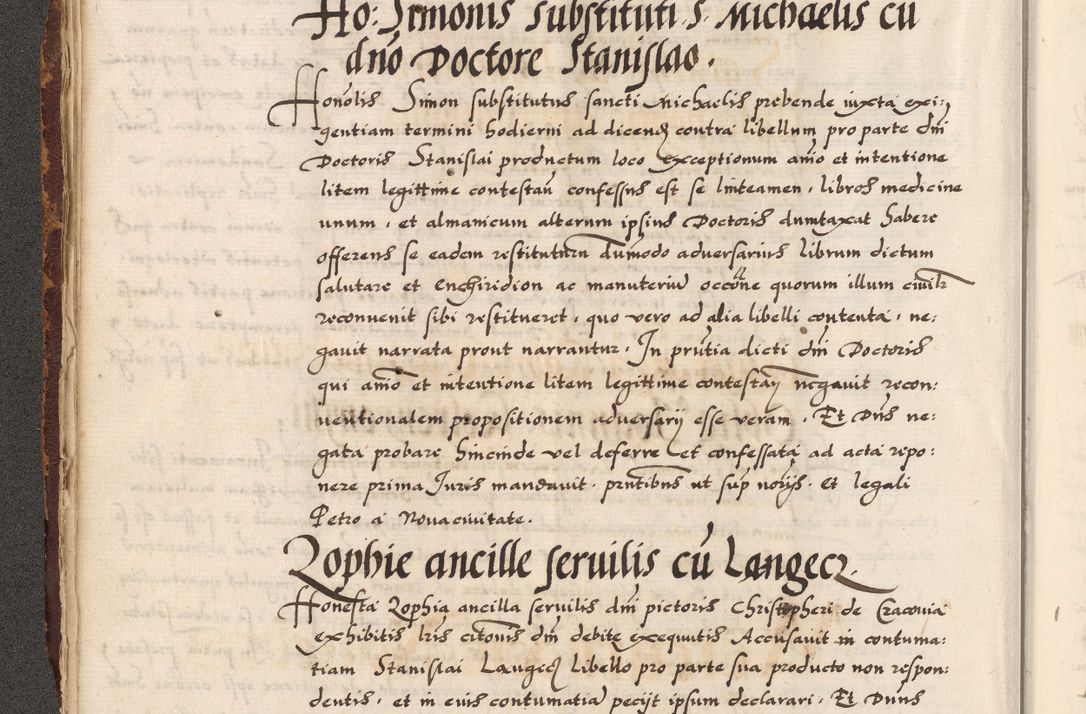 Ho: Simonis substituti S. Michaelis cū
dnō Doctore Stanislao.
Honōlis Simon substitutus sancti Michaelis prebende iuxta exi:
gentiam termini hodierni ad dicenđ contra libellum pro parte dni
Doctoris Stanislai productum loco exceptionum anīo et intentione
litem legittime contestan̄ confessus est se linteamen, libros medicine
unum, et almanicum alterum ipsius Doctoris dumtaxat habere
offerens se eadem restituturu dummodo adversarius librum dictum
salutare et Enchiridion ac manuteriu occōne quorum illum civilr
reconvenit sibi restitueret, quo vero ad alia libelli contenta, ne:
gavit narrata prout narrantur. In prn̄tia dicti dni Doctoris
qui anīo et intentione litem legittime contestan̄ negavit recon:
ventionalem propositionem adversarij esse veram. Et Dn̄s ne:
gata probare hincinde vel deferre et confessata ad acta repo:
nere prima Iuris mandavit. prn̄tibus ut sup norijs. et legali
Petro a Novacivitate.
Zophie ancille servilis cū Langecz.
Honesta Zophia ancilla servilis dni pictoris Christopheri de Cracovia
exhibitis lrīs citōnis dni debite exequutis Accusavit in contuma:
tiam Stanislai Laugicz libello pro parte sua producto non respon:
dentis, et in eius contumatia pecijt ipsum declarari. Et Dn̄us